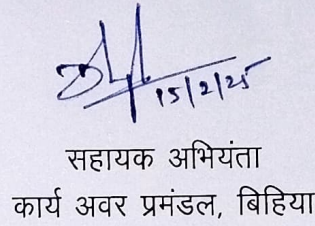 15/2/25
सहायक अभियंता
कार्य अवर प्रमंडल, बिहिया